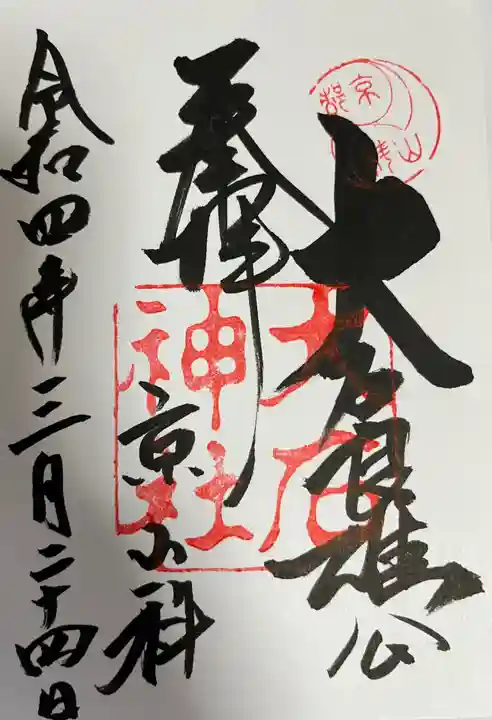 大石良雄公
奉拝
京山科
令和四年三月二十四日
大石神社